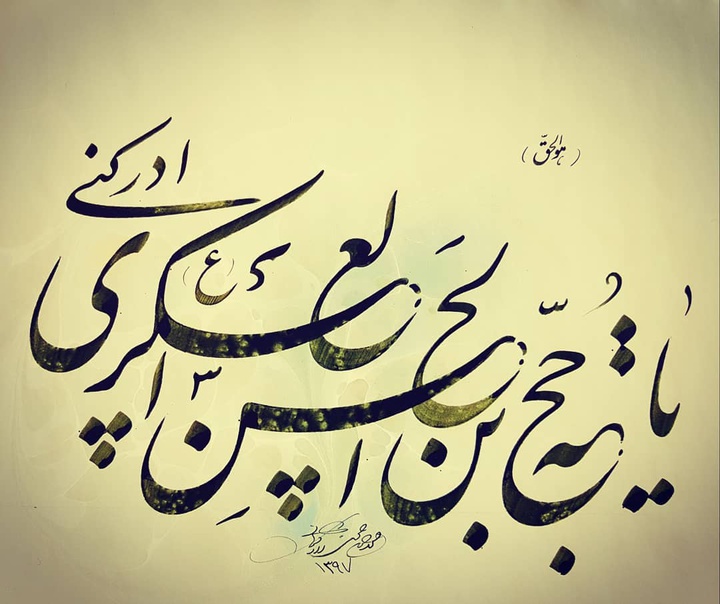 (هوالحق)
یا حجة بن الحسن العسکری (ع) ادرکنی
۱۳۹۷